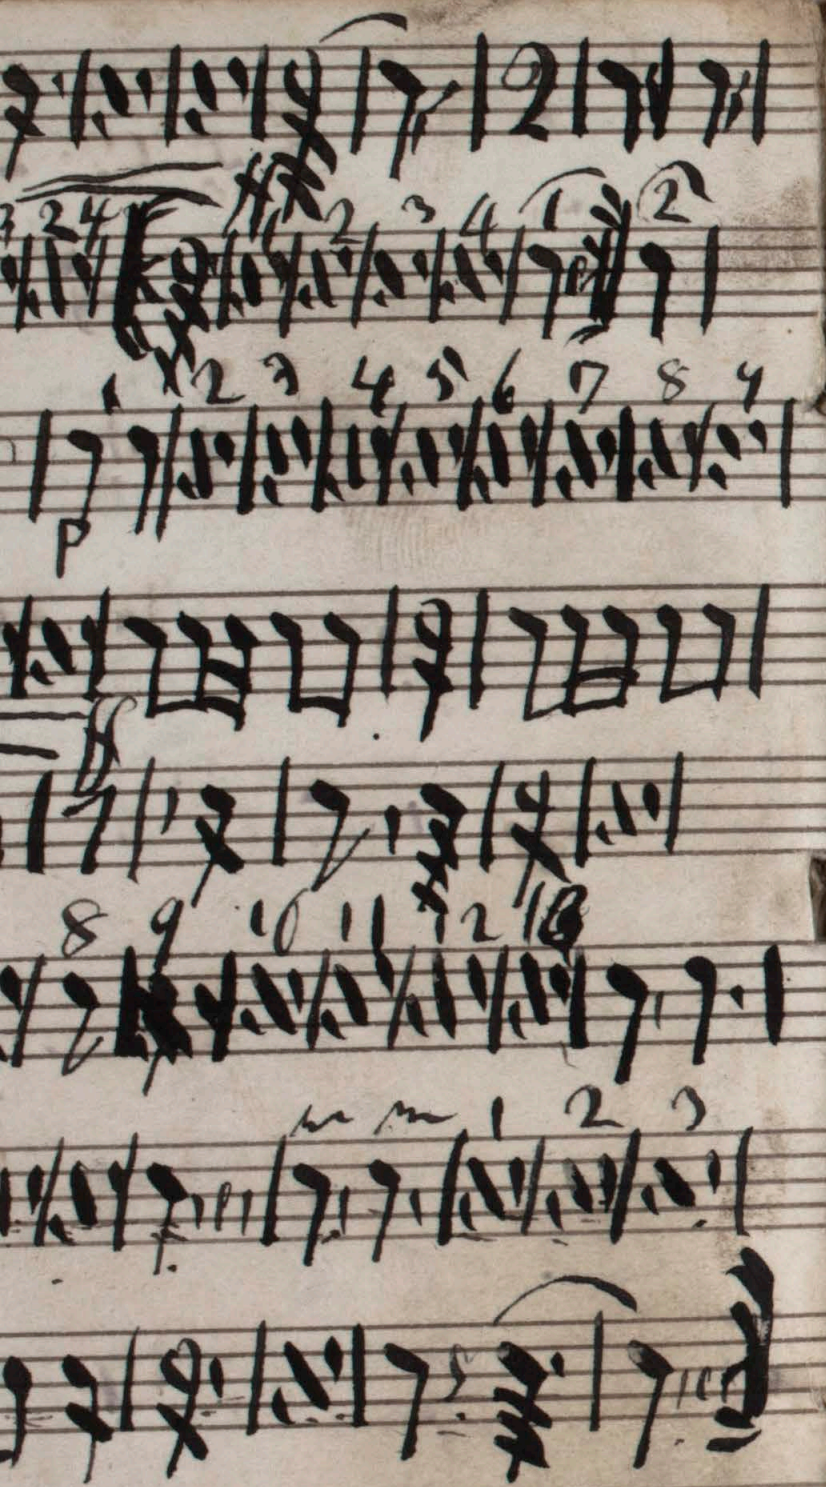 2
3 2 4 1 2 3 4 1 2
1 2 3 4 5 6 7 8 9
p
ff
8 9 10 11 12 13
1 2 3